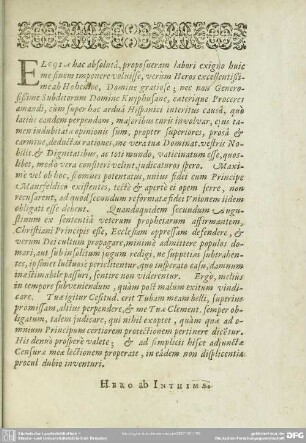 ELegia hac absolutâ, proposueram labori exiguo huic
me finem imponere voluisse, verum Heros excellentissi-
me ab Hohenloe, Domine gratiose; nec non Genero-
sissime Subditorum Domine Kniphusane, caterique Proceret
amandi, cùm super hac arduâ Hispaniæ interitus causâ, quò
latius eandem perpendam, majoribus curis involvar, ejus ta-
men indubitata opinionis sum, propter superiores, prosâ &
carmine, deductas rationes, me vera tua Dominat. vestris No-
bilit. & Dignitatibus, ac toti mundo, vaticinatum esse, quos-
libet, modò vera censores velint, judicaturos spero. Maxi-
mè vel ob hoc, si omnes potentatus, unius fidei cum Principe
à Mansfeldio existentes, tectè & apertè ei opem ferre, non
recusarent, ad quod secundum reformata fidei Unionem iidem
obligati esse debent. Quandoquidem secundùm Augu-
stinum ex sententiâ veterum prophetarum affirmantem,
Christiani Principis esse, Ecclesiam oppressam defendere, &
verum Dei cultum propagare, minimè admittere populos do-
mari, aut sub insolitum jugum redigi, ne suppetias subtrahen-
tes, ipsimet luctuosè periclitentur, quo insperato casu, damnum
inæstimabile passuri, sentire non viderentur. Ergò, melius
in tempore subveniendum, quàm post malum exitum vindi-
care. Tua igitur Celsitud. erit Tubam meam belli, superius
promissam, altius perpendere, & me Tuæ Clement. semper ob-
ligatum, talem judicare, qui nihil exoptet, quàm quæ ad o-
mnium Principum certiorem protectionem pertinere dicitur.
His denuò prosperè valete; & ad simplicis hisce adjunctæ
Censuræ meæ lectionem properate, in eâdem non displicentia
procul dubio inventuri.
HERO ab INTHIMA.